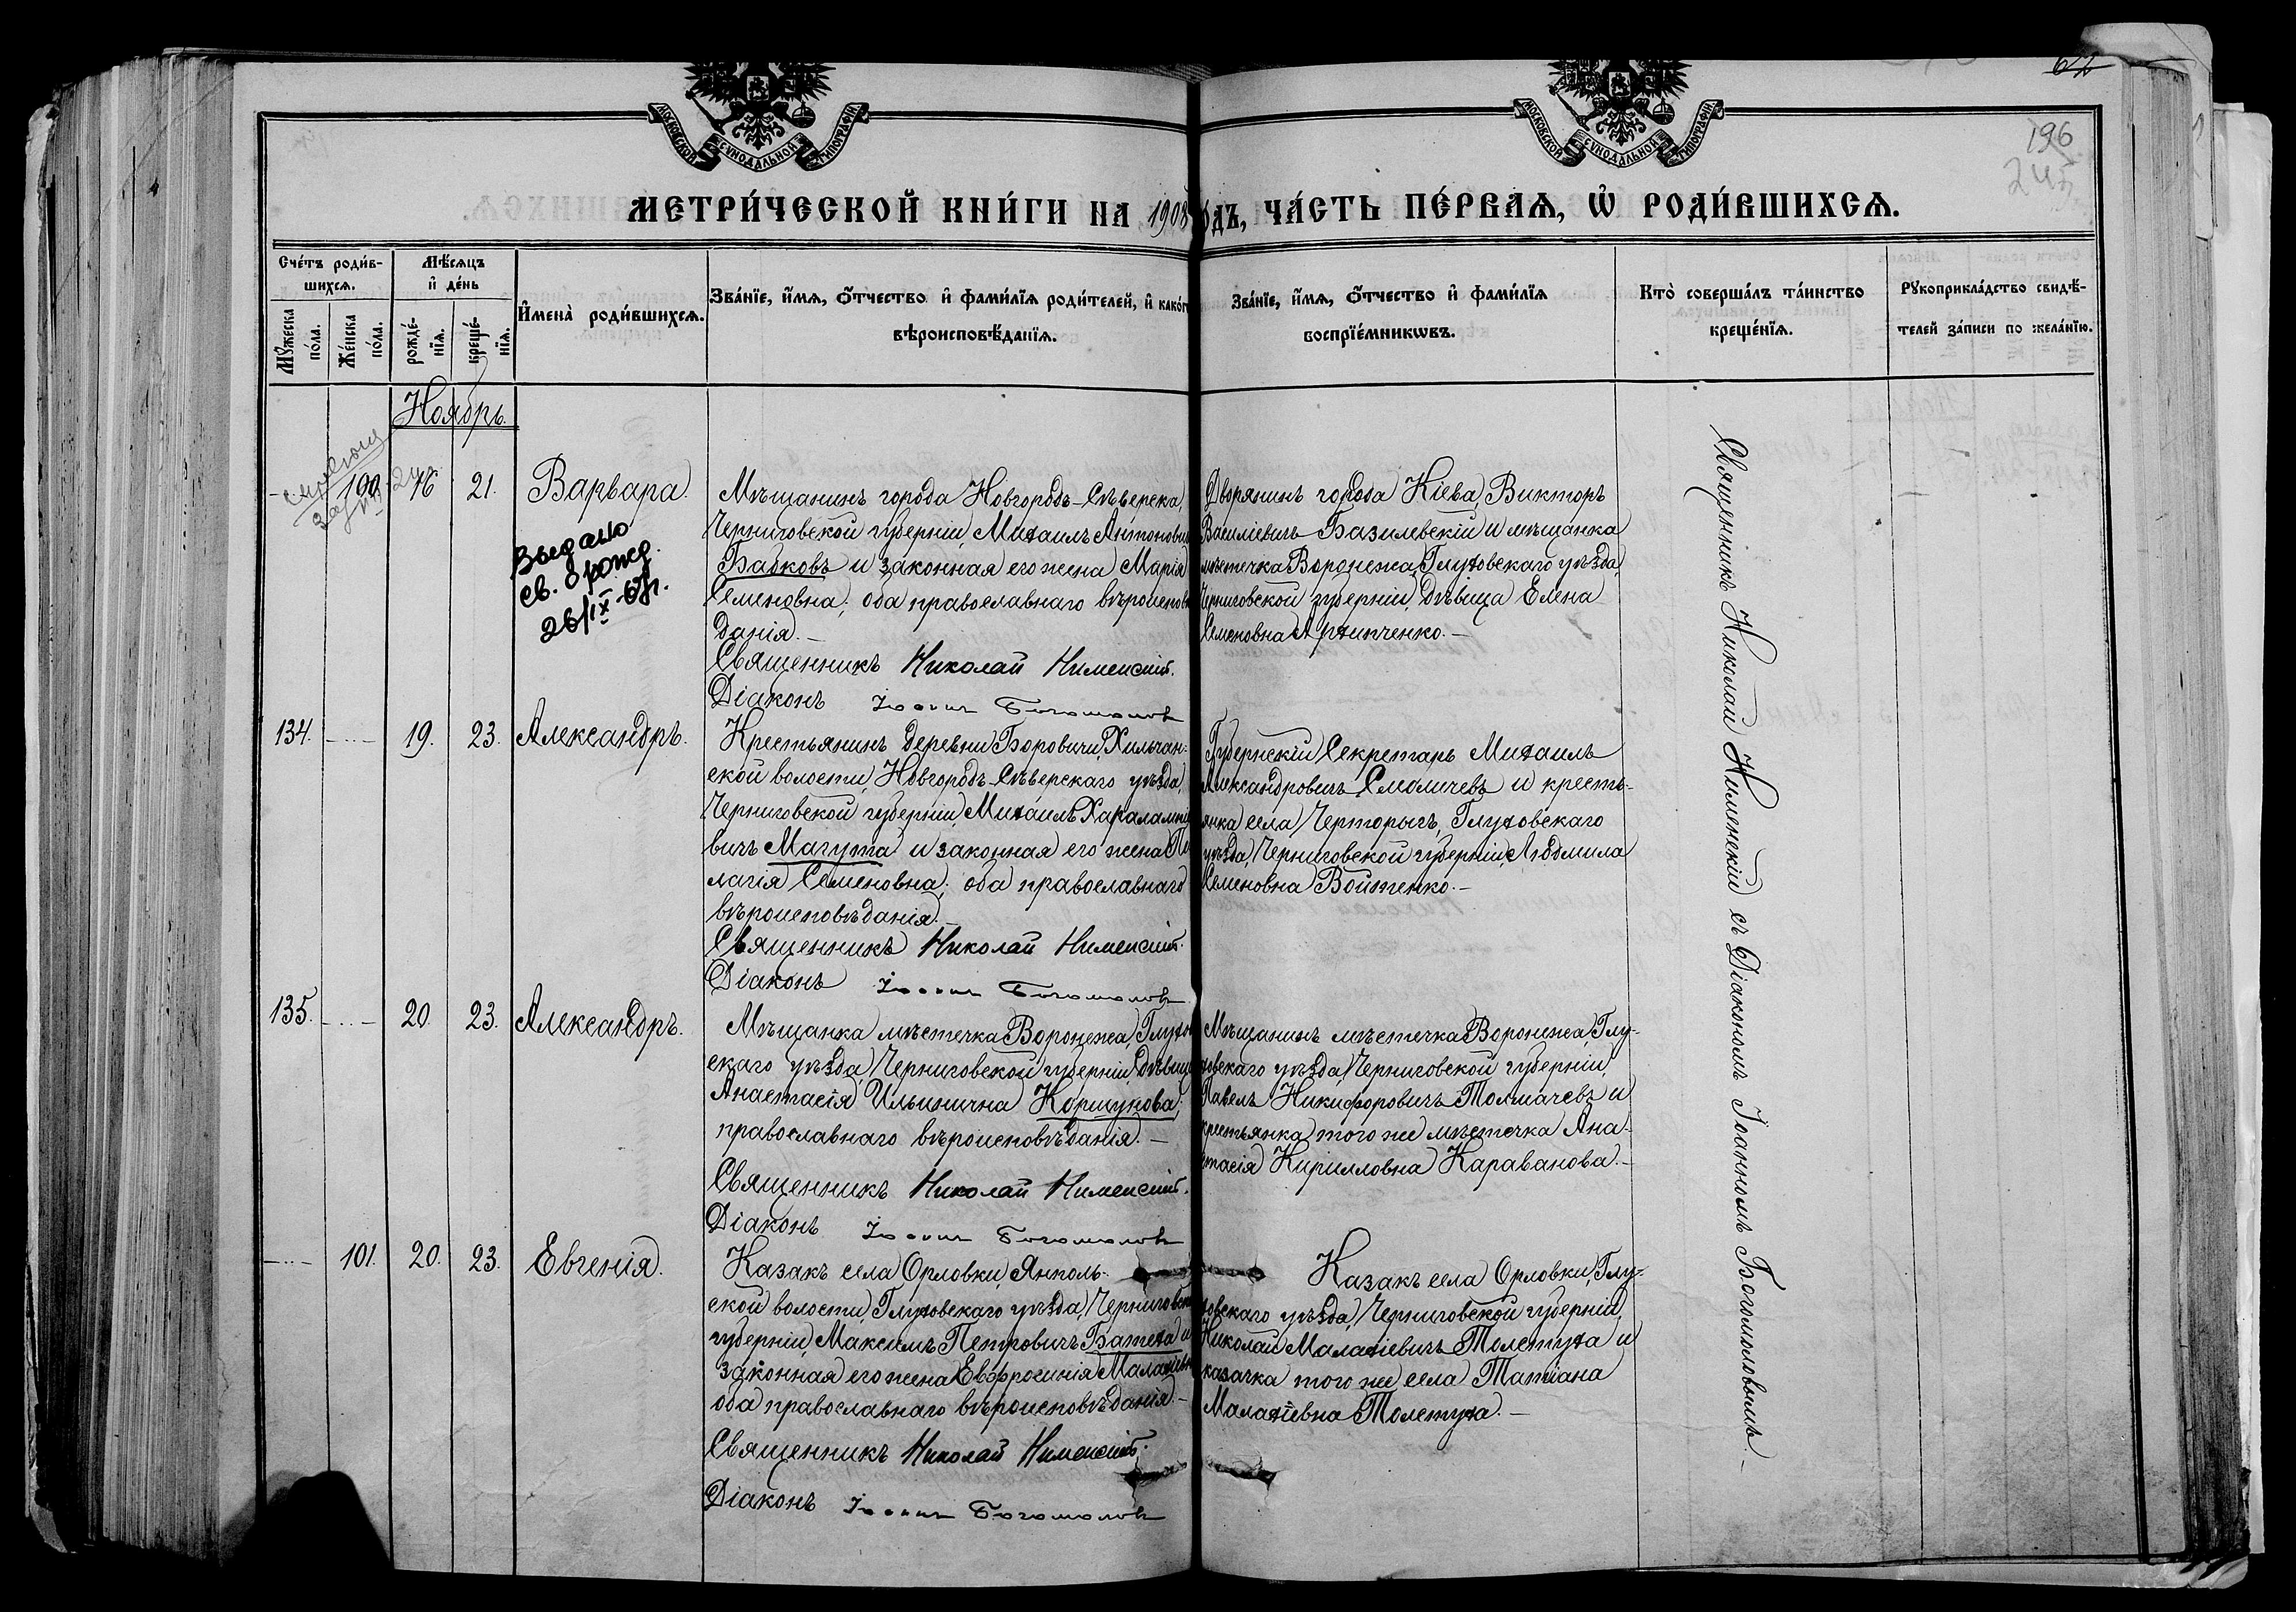 МОСКОВСКОЙ СУНОДАЛЬНОЙ ТИПОГРАФІИ
МОСКОВСКОЙ СУНОДАЛЬНОЙ ТИПОГРАФІИ
196
МЕТРИ́ЧЕСКОЙ КНИ́ГИ НА 1908
ОДЪ, ЧА́СТЬ ПЕ́РВАѦ, Ѡ РОДИ́ВШИХСѦ.
Сче́тъ роди́в-
шихсѧ.
Мꙋ́жеска
по́ла.
Же́нска
по́ла.
Мѣ́сѧцъ
и҆ де́нь
рожде́-
нїѧ.
креще́-
нїѧ.
И҆мена̀ роди́вшихсѧ.
Зва́нїе, и҆́мѧ, ѻ҆́тчество и҆ фами́лїѧ роди́телей, и҆ како́г
вѣроисповѣ́данїѧ.
Зва́нїе, и҆́мѧ, ѻ҆́тчество и҆ фами́лїѧ
воспрїе́мникѡвъ.
Кто̀ соверша́лъ та́инство
креще́нїѧ.
Рꙋкоприкла́дство свидѣ́-
телей за́писи по жела́нїю.
Ноябрь.
100 16 21. Варвара.
Выдано
св. о рожд.
26/IX-67г.
Мѣщанинъ города Новгородъ-Сѣверска,
Черниговской губерніи, Михаилъ Антонович
Бабковъ и законная его жена Марія
Семеновна; оба православнаго вѣроисповѣ
данія.-
Священникъ Николай Нименскій.
Діаконъ Іоаннъ Богомоловъ
Дворянинъ города Кіева, Викторъ
Василіевичъ Базилевскій и мѣщанка
мѣстечка Воронежа, Глуховскаго уѣзда,
Черниговской губерніи, дѣвица Елена
Семеновна Архипченко.-
134. 19. 23. Александръ.
Крестьянинъ деревни Боровичи, Хильчан-
ской волости, Новгородъ-Сѣверскаго уѣзда,
Черниговской губерніи, Михаилъ Харалампіе
вичъ Магута и законная его жена Пе
лагія Семеновна; оба православнаго
вѣроисповѣданія.
Священникъ Николай Нименскій.
Діаконъ Іоаннъ Богомоловъ
Губернскій Секретарь Михаилъ
Александровичъ Смоличевъ и кресть-
янка села Чорторыгъ, Глуховскаго
уѣзда, Черниговской губерніи, Людмила
Семеновна Войтенко.-
135. 20. 23. Александръ.
Мѣщанка мѣстечка Воронежа, Глухов
скаго уѣзда, Черниговской губерніи, дѣвица
Анастасія Ильинична Коршунова;
православнаго вѣроисповѣданія.-
Священникъ Николай Нименскій.
Діаконъ Іоаннъ Богомоловъ
Мѣщанинъ мѣстечка Воронежа, Глу-
ховскаго уѣзда, Черниговской губерніи,
Павелъ Никифоровичъ Толмачевъ и
крестьянка того же мѣстечка Ана-
стасія Кирилловна Караванова.-
101. 20. 23. Евгенія.
Казакъ села Орловки, Янполь-
ской волости, Глуховскаго уѣзда, Черниговской
губерніи, Максимъ Петровичъ Батеха и
законная его жена Евфросинія Малахіевн
оба православнаго вѣроисповѣданія.-
Священникъ Николай Нименскій.
Діаконъ Іоаннъ Богомоловъ
Казакъ села Орловки, Глу-
ховскаго уѣзда, Черниговской губерніи,
Николай Малахіевичъ Толстуха и
казачка того же села Татіана
Малахіевна Толстуха.-
Священникъ Николай Нименскій съ Діакономъ Іоанномъ Богомоловымъ.-